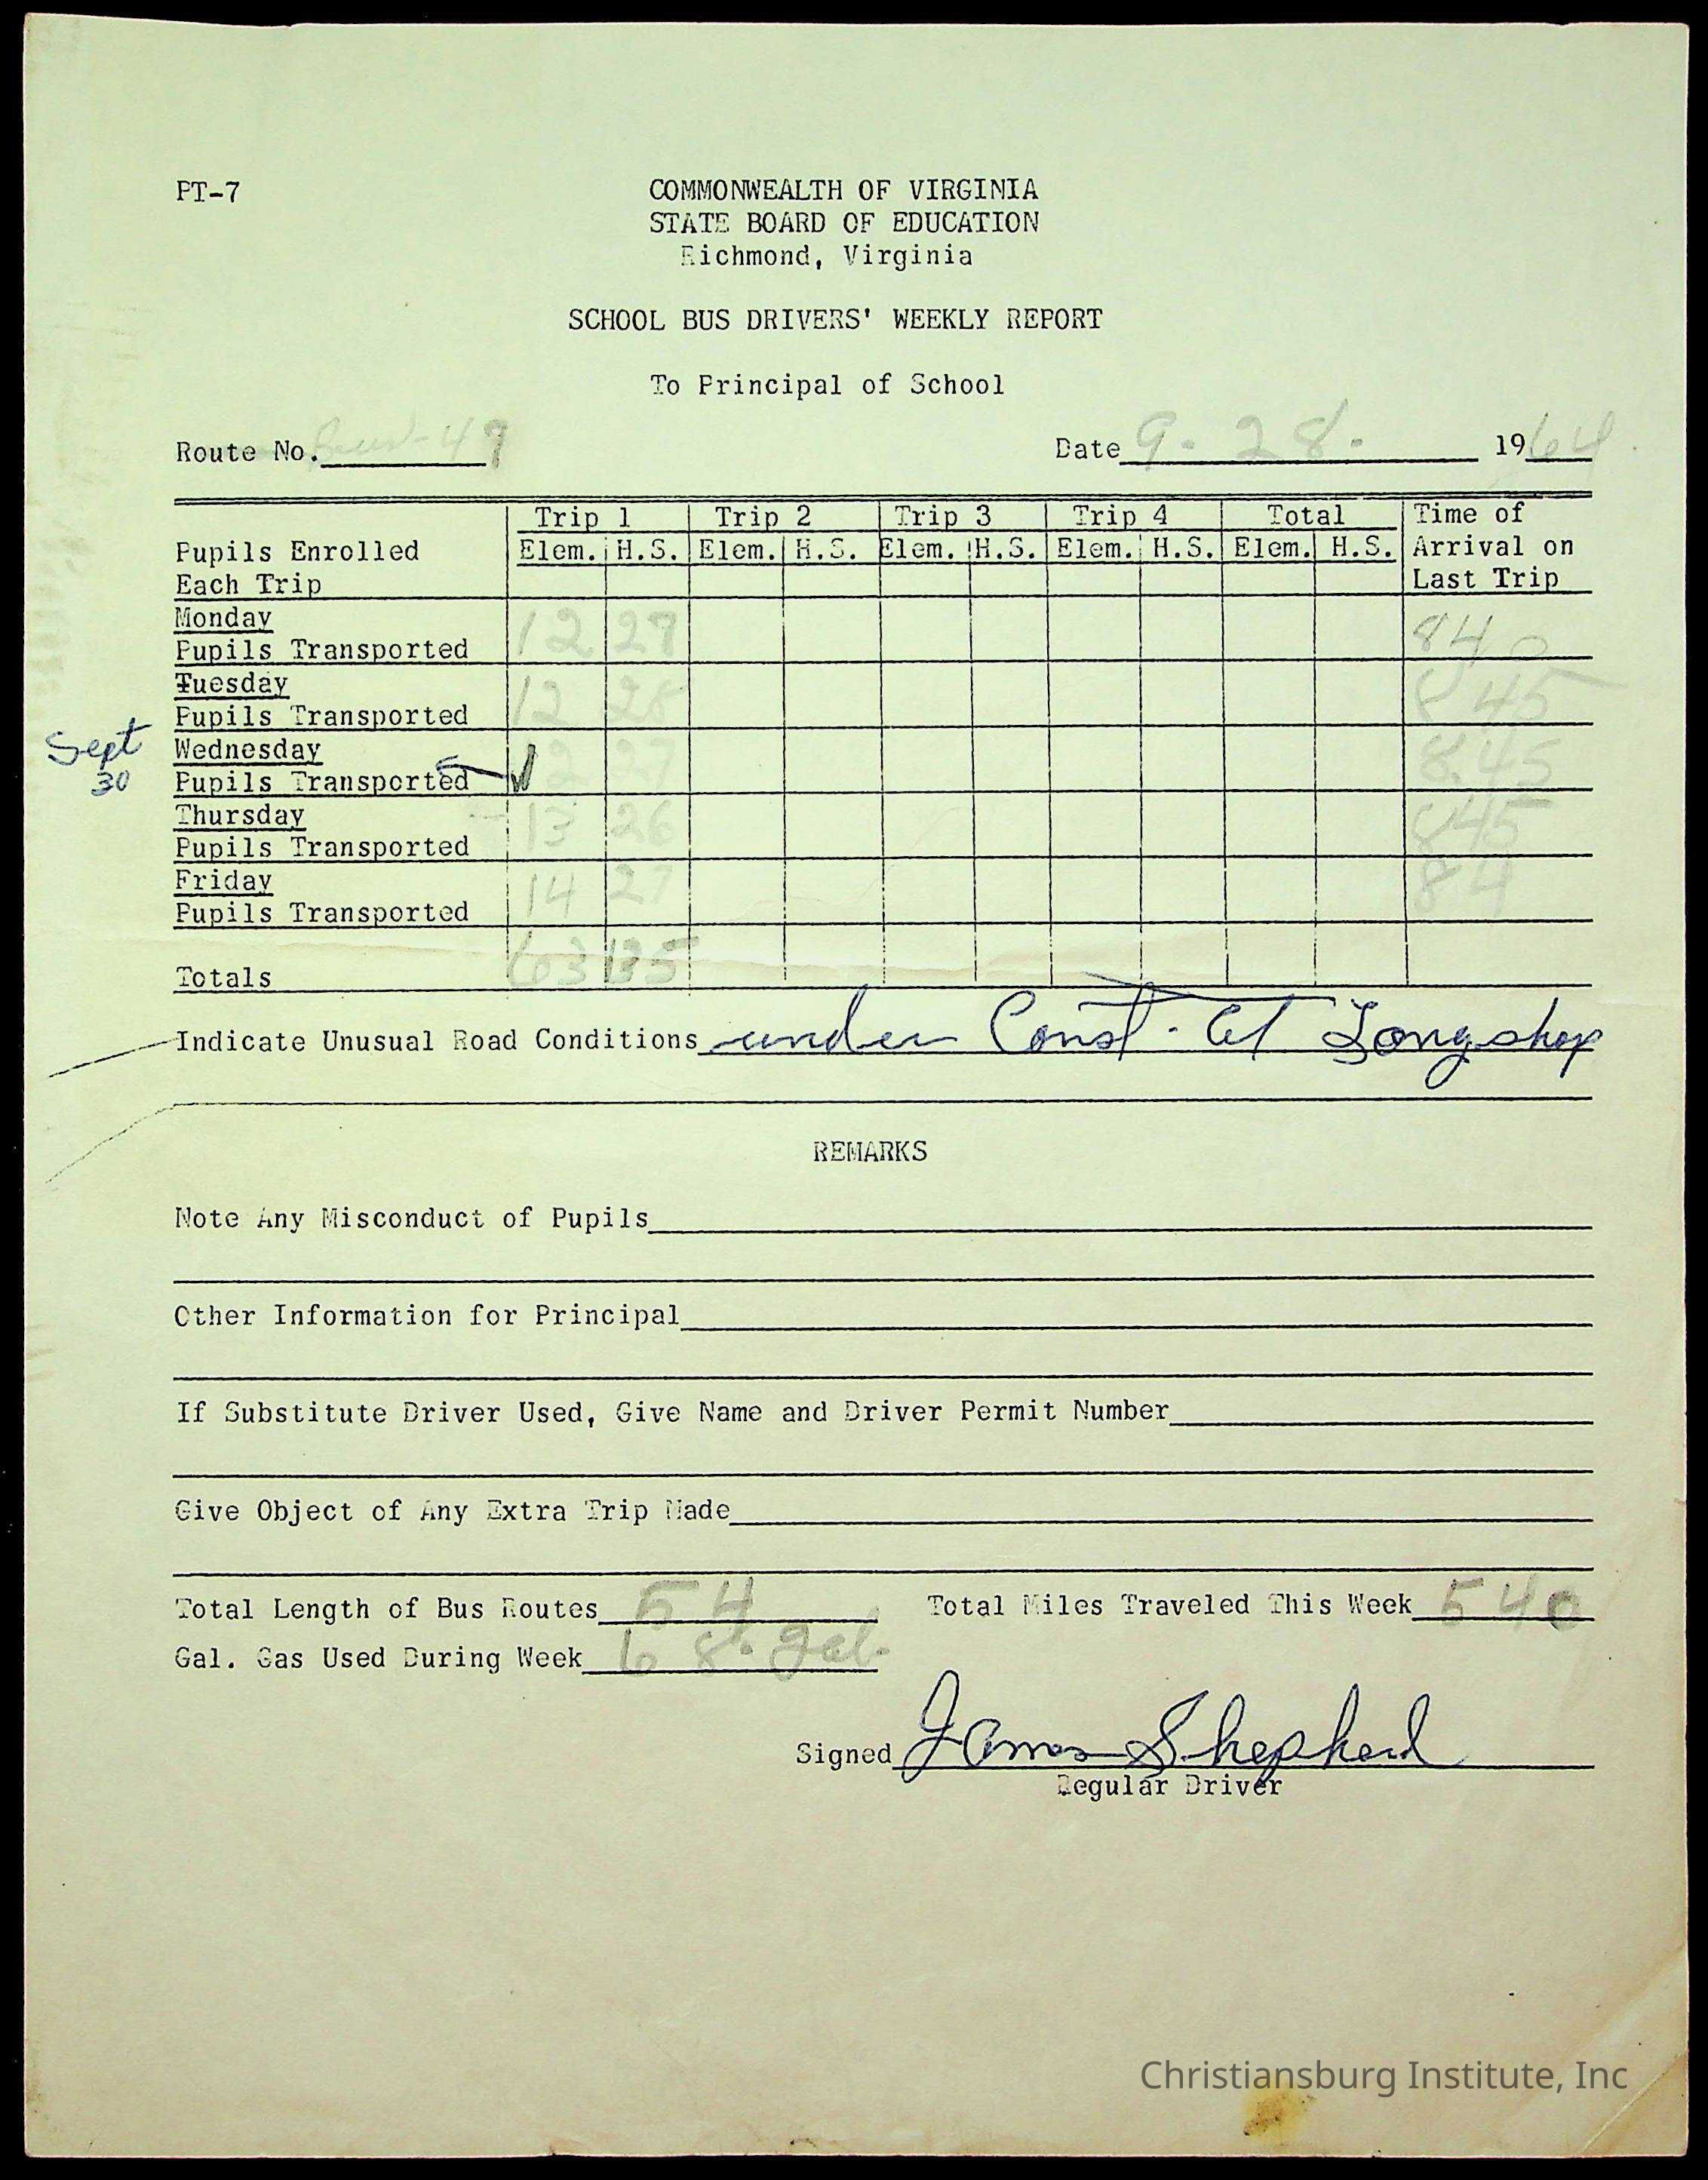 PT-7
COMMONWEALTH OF VIRGINIA
STATE BOARD OF EDUCATION
Richmond, Virginia
SCHOOL BUS DRIVERS' WEEKLY REPORT
To Principal of School
Route No. Bus-47 Date 9. 28. 1964
Trip 1 Trip 2 Trip 3 Trip 4 Total Time of
Pupils Enrolled Elem. H.S. Elem. H.S. Elem. H.S. Elem. H.S. Elem. H.S. Arrival on
Each Trip Last Trip
Monday
Pupils Transported 12 27 840
Tuesday
Pupils Transported 12 28 845
Sept Wednesday
30 Pupils Transported 2 27 8.45
Thursday
Pupils Transported 13 26 845
Friday
Pupils Transported 14 27 84
Totals 63 135
Indicate Unusual Road Conditions under Const. at Longshop
REMARKS
Note Any Misconduct of Pupils
Other Information for Principal
If Substitute Driver Used, Give Name and Driver Permit Number
Give Object of Any Extra Trip Made
Total Length of Bus Routes 54 Total Miles Traveled This Week 540
Gal. Gas Used During Week 68. gal.
Signed James Shepherd
Regular Driver
Christiansburg Institute, Inc